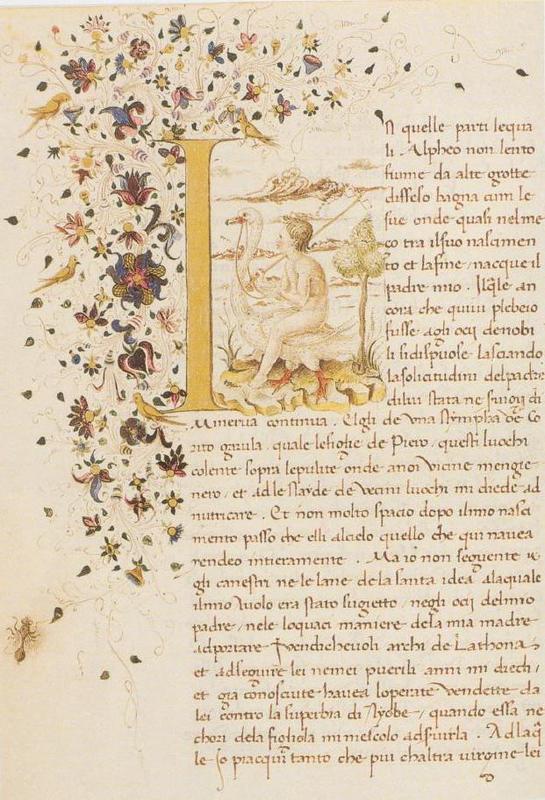 IN quelle parti lequa
li Alpheo non lento
fiume da alte grotte
disseso bagna cum le
sue onde quasi nel me
co tra il suo nascimen
to et la fine / nacque il
padre mio . Ilq̃le an
cora che quiui plebeio
fusse agli ocii de nobi
li si dispuose lasciando
la solicitudini del padre
di lui stata ne di
Minerva continua . Elgli de vna Nympha de Co
rito garula / quale le figlie de Piero / questi luochi
colente sopra le pulite onde a noi vicine me ingie
nero / et ad le Nayde de vecini luochi mi diede ad
nutricare . Et non molto spacio dopo il mio nasci
mento passo che elli al cielo quello che qui n auea
rendeo intieramente . Ma io non seguente
gli canestri ne le lane de la santa idea a la quale
il mio avolo era stato sugietto / negli ocij del mio
padre / nele loquaci maniere dela mia madre
ad portare Vendichevoli archi de Lathona /
et ad seguire lei ne miei puerili anni mi diedi /
et gia conosciute havea l operate vendette da
lei contro la superbia di Nyobe / quando essa ne
chori dela figliola mi mescolo ad servirla . Ad laq̃
le io piacqui tanto che piu ch altra virgine lei